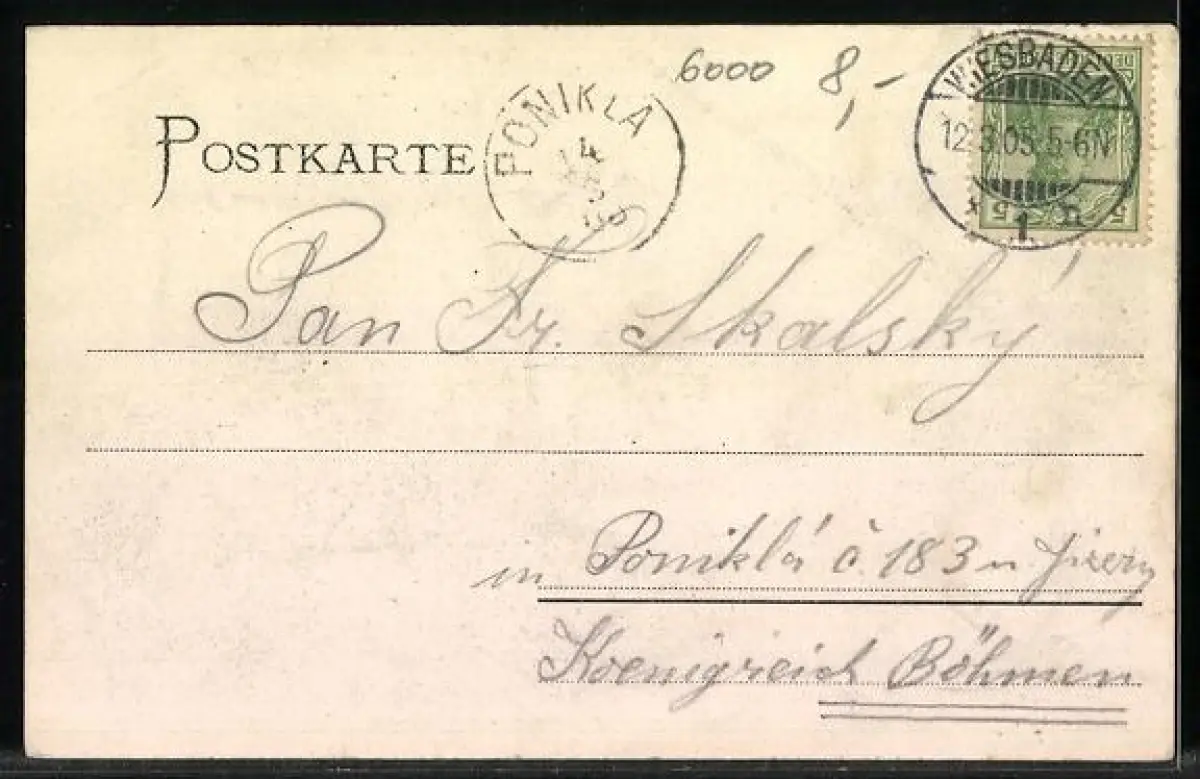 6000 8,-
POSTKARTE
PONIKLA
4
WIESBADEN
12.3.05.5-6N
1
5 5
Pan Fr. Skalský
in Poniklá č. 183 u Jizery
Koenigreich Böhmen